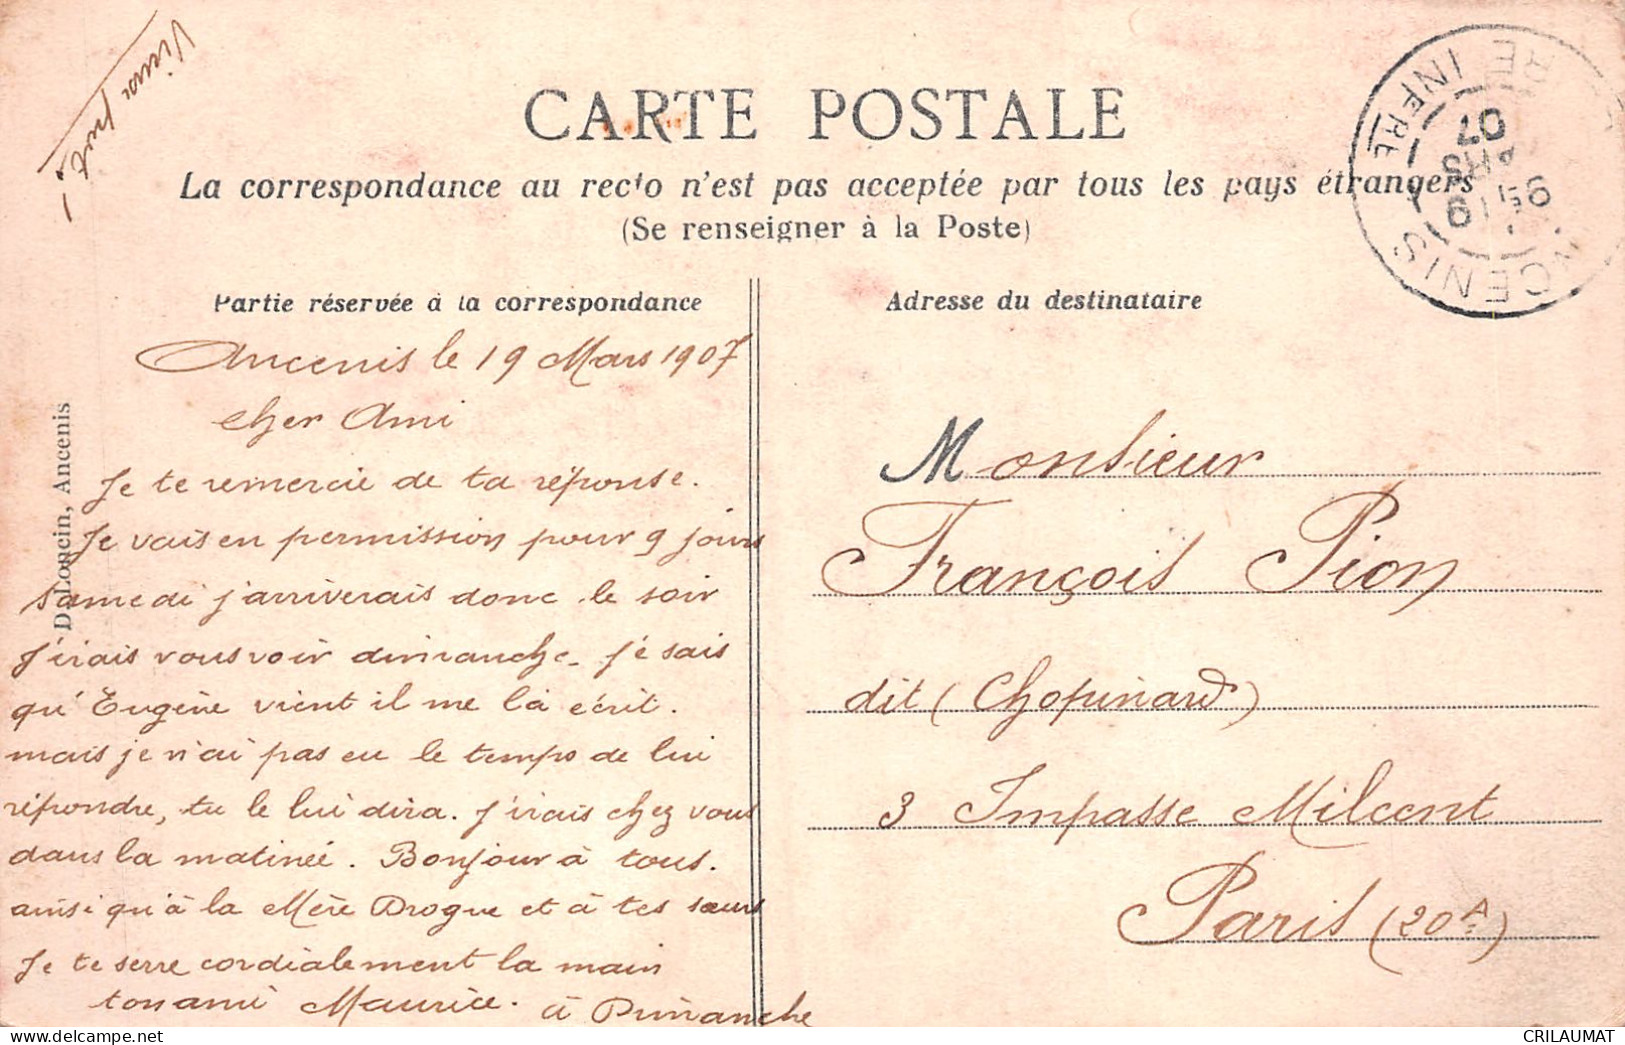 CARTE POSTALE
La correspondance au recto n'est pas acceptée par tous les pays étrangers
(Se renseigner à la Poste)
Partie réservée à la correspondance
Ancenis le 19 Mars 1907
cher Ami
Je te remercie de ta réponse.
Je vais en permission pour 9 jours
samedi j'arriverais donc le soir
J'irais vous voir dimanche. Je sais
qu'Eugène vient il me la écrit.
mais je n'ai pas eu le temps de lui
répondre, tu le lui dira. J'irais chez vous
dans la matineé. Bonjour à tous.
ainsi qu'à la Mère Drogue et à tes sœurs
Je te serre cordialement la main
ton ami Maurice. à Dimanche
D. Loncin, Ancenis
Adresse du destinataire
Monsieur
François Pion
dit (Chopinard)
3 Impasse Milcent
Paris (20A)
ANCENIS
RE INFRE
19
MARS
07
CRILAUMAT